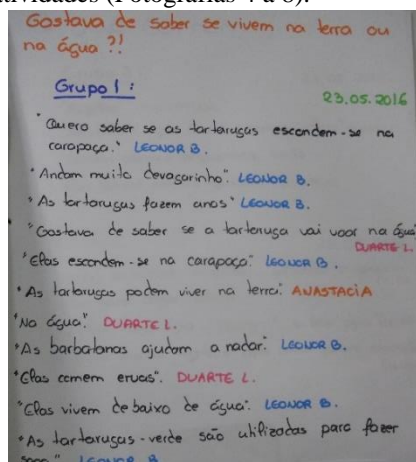 tividades (Fotografias 4 a 8).
Gostava de saber se vivem na terra ou
na água ?!
Grupo 1 :
23.05.2016
"Quero saber se as tartarugas escondem-se na
carapaça." LEONOR B.
"Andam muito devagarinho". LEONOR B.
"As tartarugas fazem anos" LEONOR B.
"Gostava de saber se a tartaruga vai voar na água"
DUARTE L.
"Elas escondem-se na carapaça". LEONOR B.
"As tartarugas podem viver na terra". ANASTACIA
"Na água". DUARTE L.
"As barbatanas ajudam a nadar". LEONOR B.
"Elas comem ervas". DUARTE L.
"Elas vivem debaixo de água". LEONOR B.
"As tartarugas-verde são utilizadas para fazer
sopa" LEONOR B.